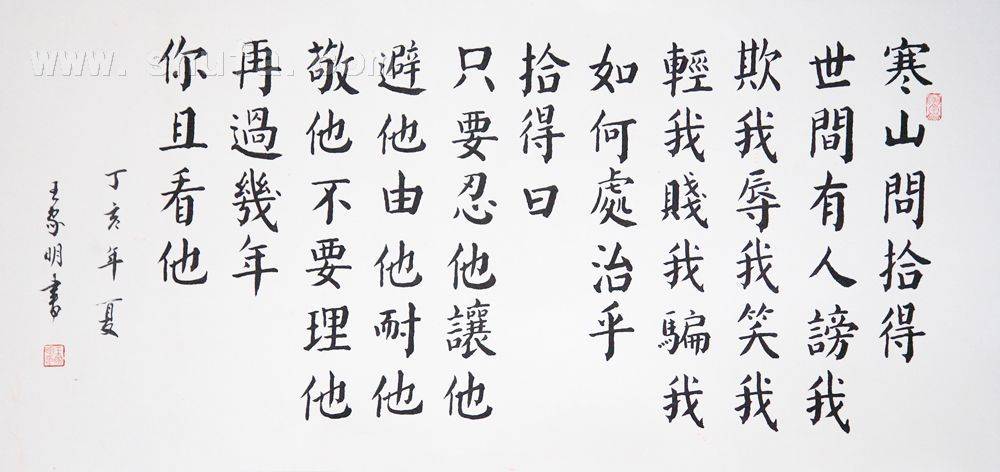 寒山問拾得
世間有人謗我
欺我辱我笑我
輕我賤我騙我
如何處治乎
拾得曰
只要忍他讓他
避他由他耐他
敬他不要理他
再過幾年
你且看他
丁亥年夏
王家明書